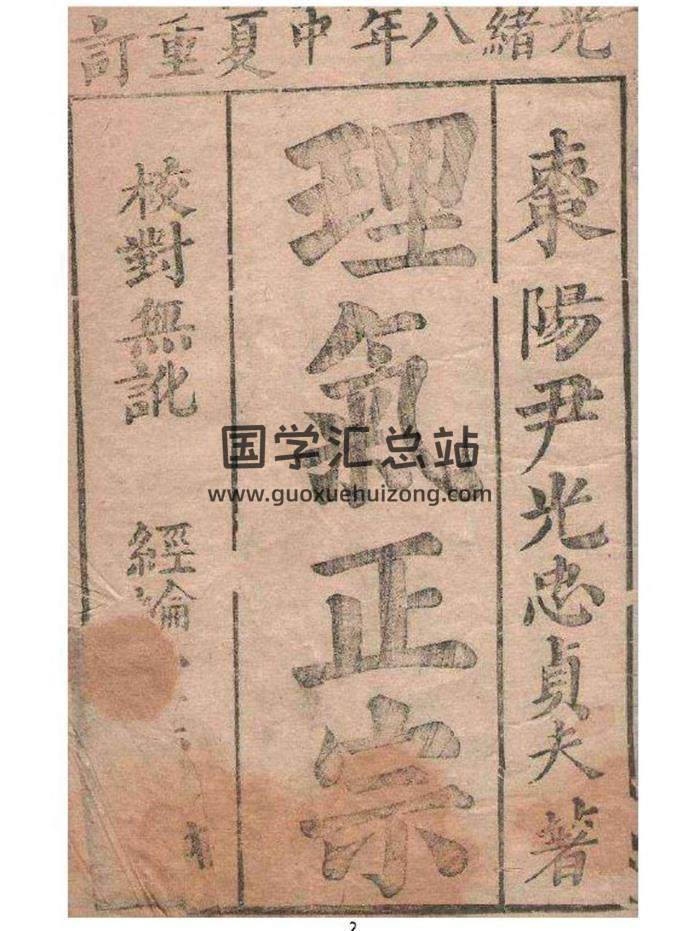 光緒八年中夏重訂
棗陽尹光忠貞夫著
理氣正宗
校對無訛
經綸
国学汇总站
www.guoxuehuizong.com
2